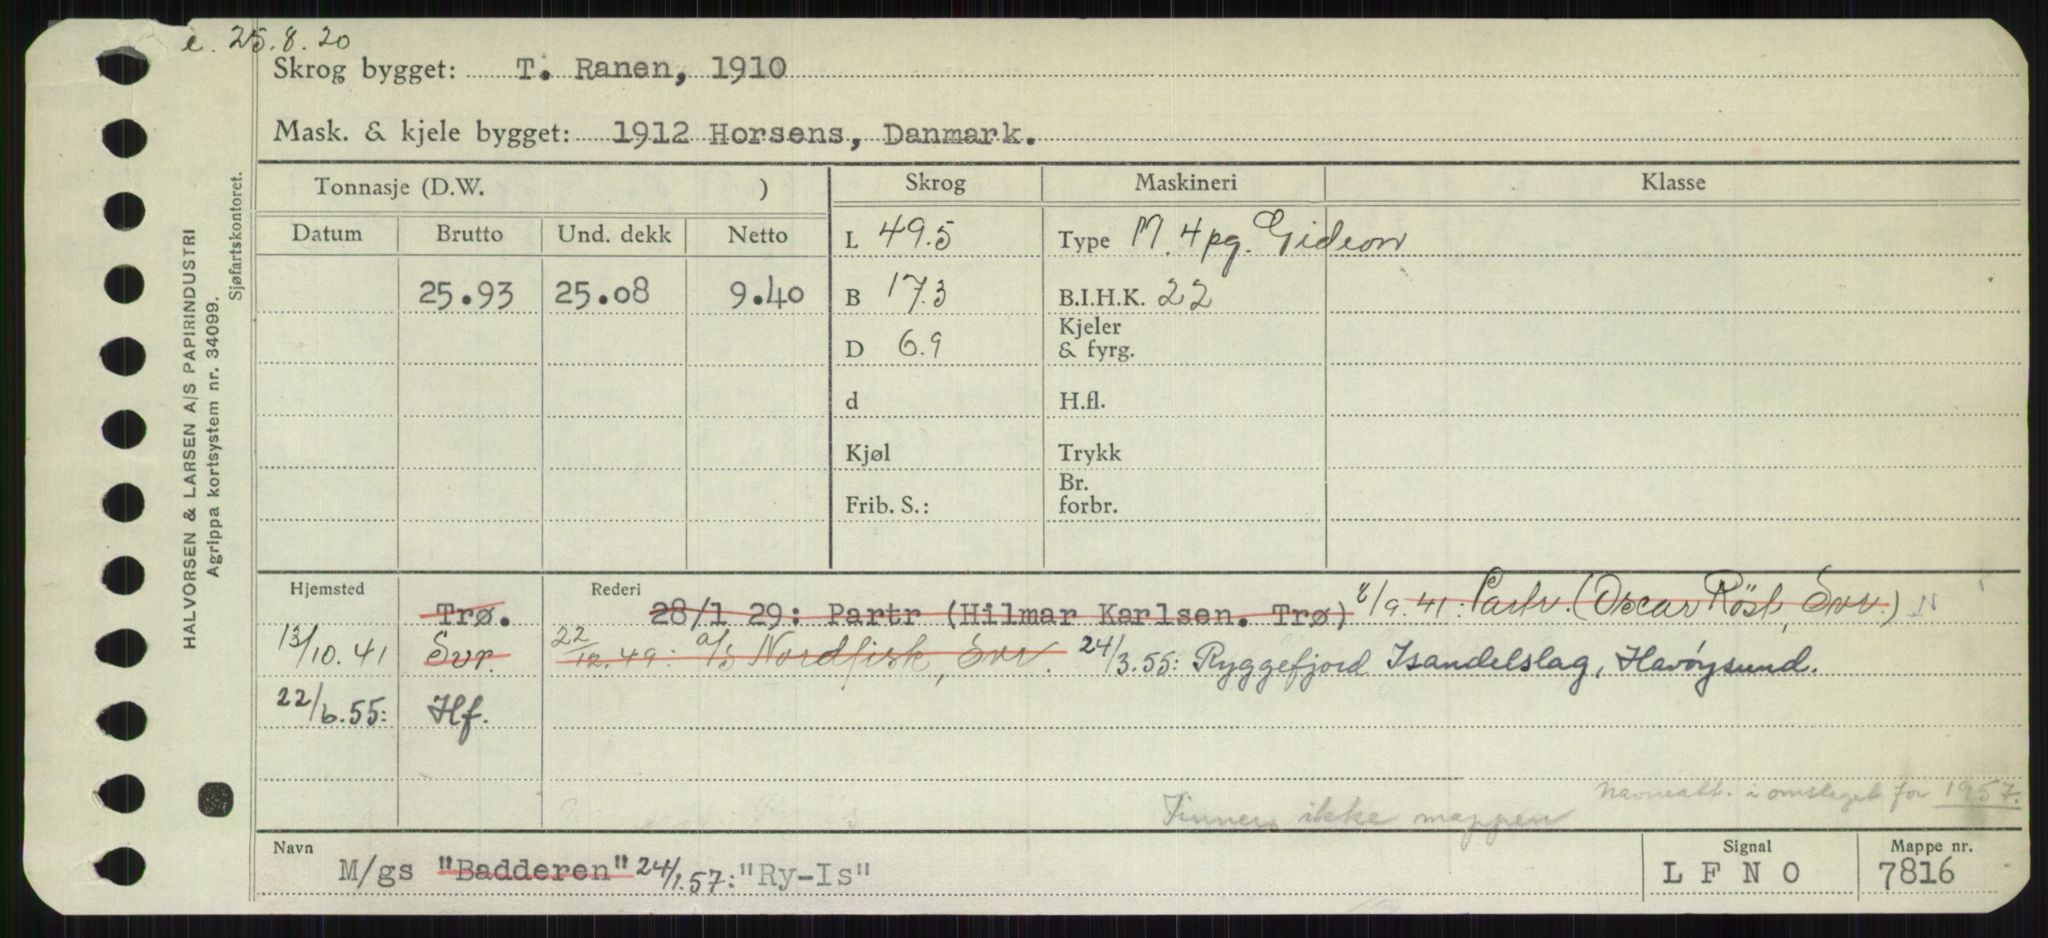 e. 25.8.20
Skrog bygget: T. Ranen, 1910
Mask. & kjele bygget: 1912 Horsens, Danmark.
HALVORSEN & LARSEN A/S PAPIRINDUSTRI
Agrippa kortsystem nr. 34099.
Sjøfartskontoret.
Tonnasje (D.W. ) Skrog Maskineri Klasse
Datum Brutto Und. dekk Netto L 49.5 Type M. 4pg. Gideon
25.93 25.08 9.40 B 17.3 B.I.H.K. 22
D 6.9 Kjeler & fyrg.
d H.fl.
Kjøl Trykk
Frib. S.: Br. forbr.
Hjemsted Rederi
Trø. 28/1 29: Partr (Hilmar Karlsen. Trø) 8/9.41: Partr (Oscar Röst, Svv.)
13/10.41 Svr. 22/12.49: a/s Nordfisk, Svv. 24/3.55: Ryggefjord Isandelslag, Havöysund.
22/6.55: Hf.
Navneatt. i omslaget for 1957.
Finner ikke mappen
Navn Signal Mappe nr.
M/gs "Badderen" 24/1.57: "Ry-Is" L F N O 7816